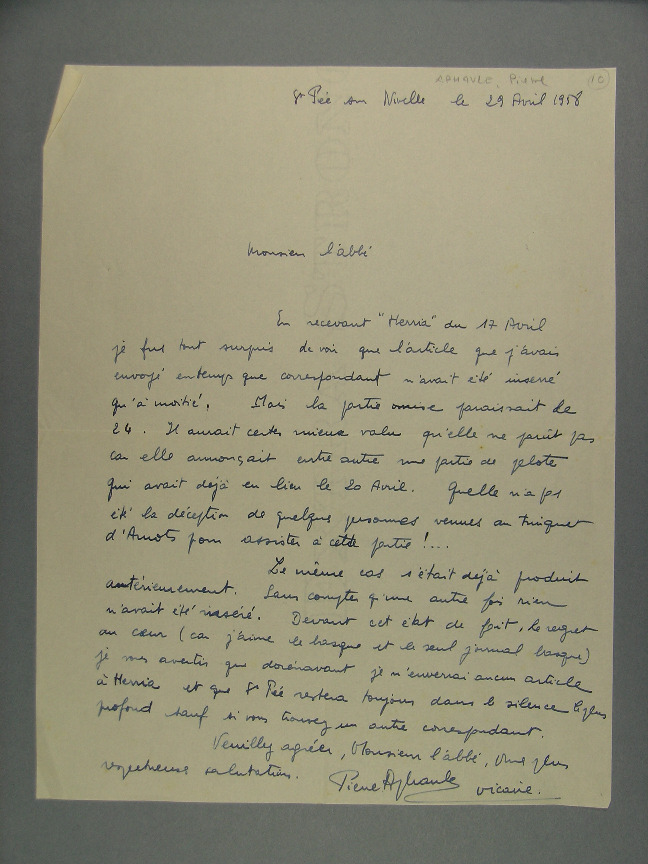 Pierre
10
St Pée sur Nivelle le 29 Avril 1958
Monsieur l'abbé
En recevant "Herria" du 17 Avril
je fus tout surpris de voir que l'article que j'avais
envoyé en temps que correspondant n'avait été inséré
qu'à moitié. Mais la partie omise paraissait le
24. Il aurait certes mieux valu qu'elle ne parût pas
car elle annonçait entre autre une partie de pelote
qui avait déjà eu lieu le 20 Avril. Quelle n'a pas
été la déception de quelques personnes venues au trinquet
d'Amots pour assister à cette partie !...
Le même cas s'était déjà produit
antérieurement. Sans compter qu'une autre fois rien
n'avait été inséré. Devant cet état de fait, le regret
au cœur (car j'aime le basque et le seul journal basque)
je vous avertis que dorénavant je n'enverrai aucun article
à Herria et que St Pée restera toujours dans le silence le plus
profond sauf si vous trouvez un autre correspondant.
Veuillez agréer, Monsieur l'abbé, mes plus
respectueuses salutations.
Pierre vicaire.